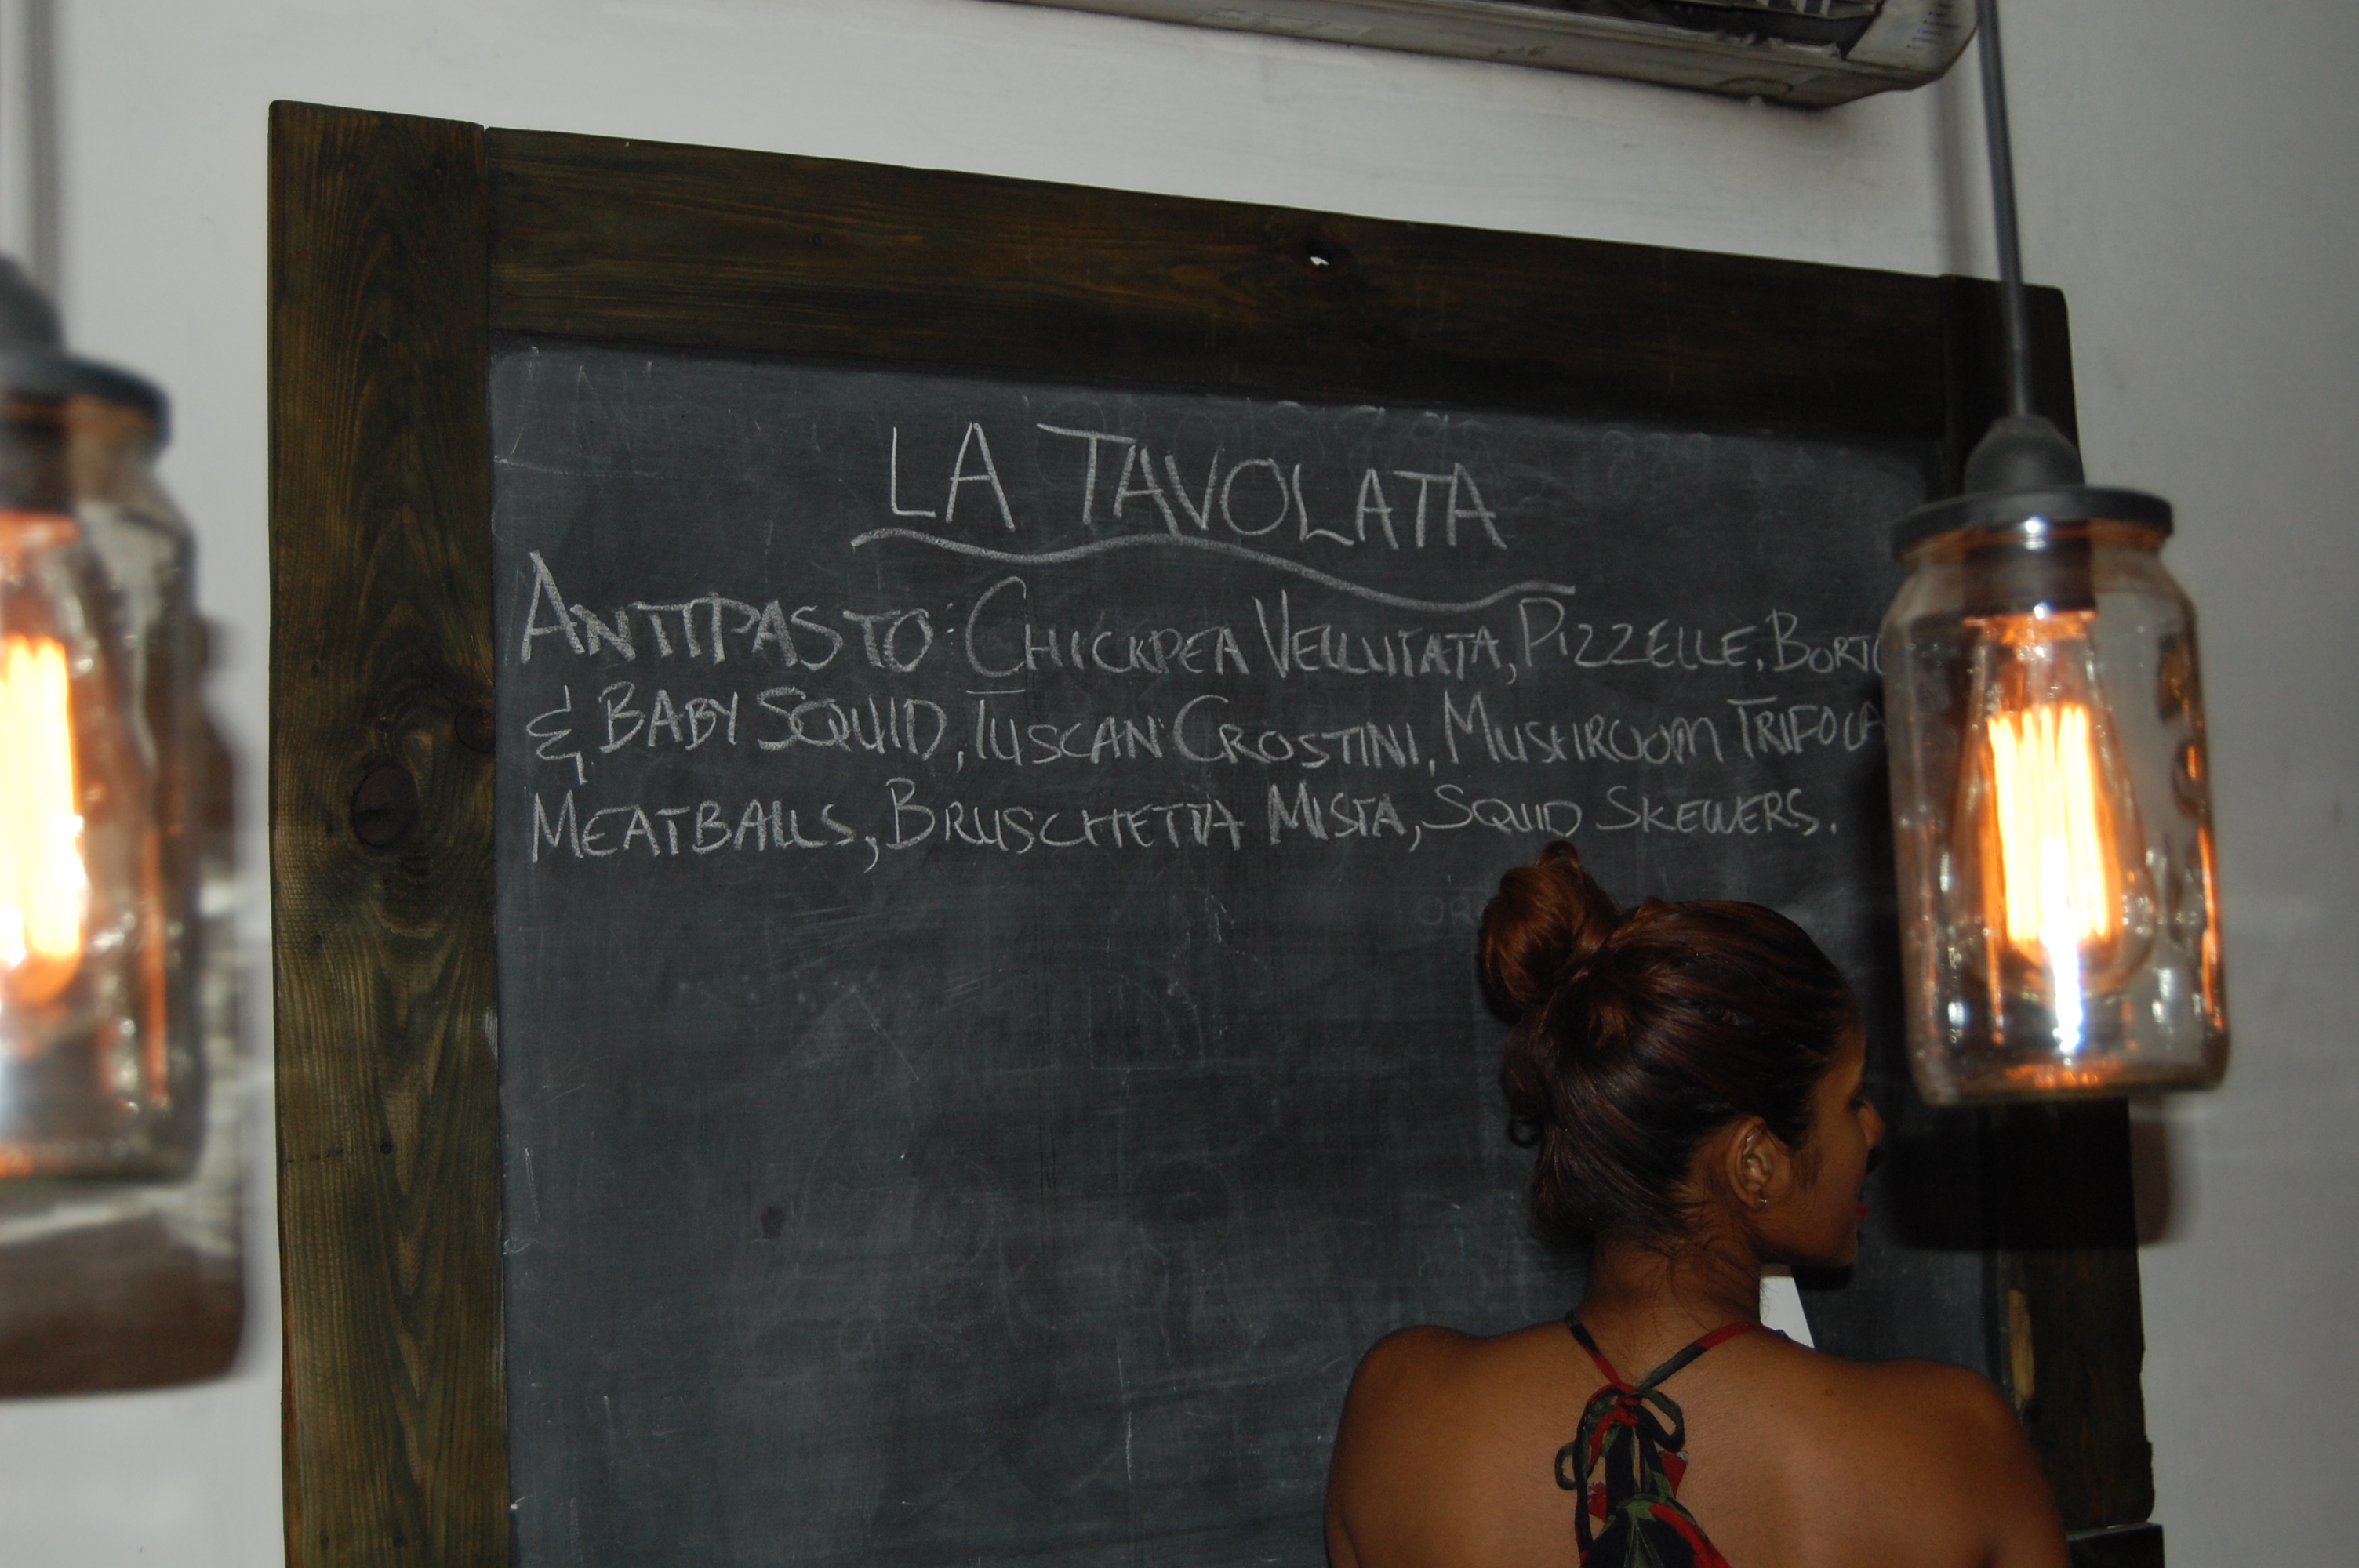 LA TAVOLATA
ANTIPASTO: CHICKPEA VELLUTATA, PIZZELLE,
& BABY SQUID, TUSCAN CROSTINI, MUSHROOM
MEATBALLS, BRUSCHETTA MISTA, SQUID SKEWERS.